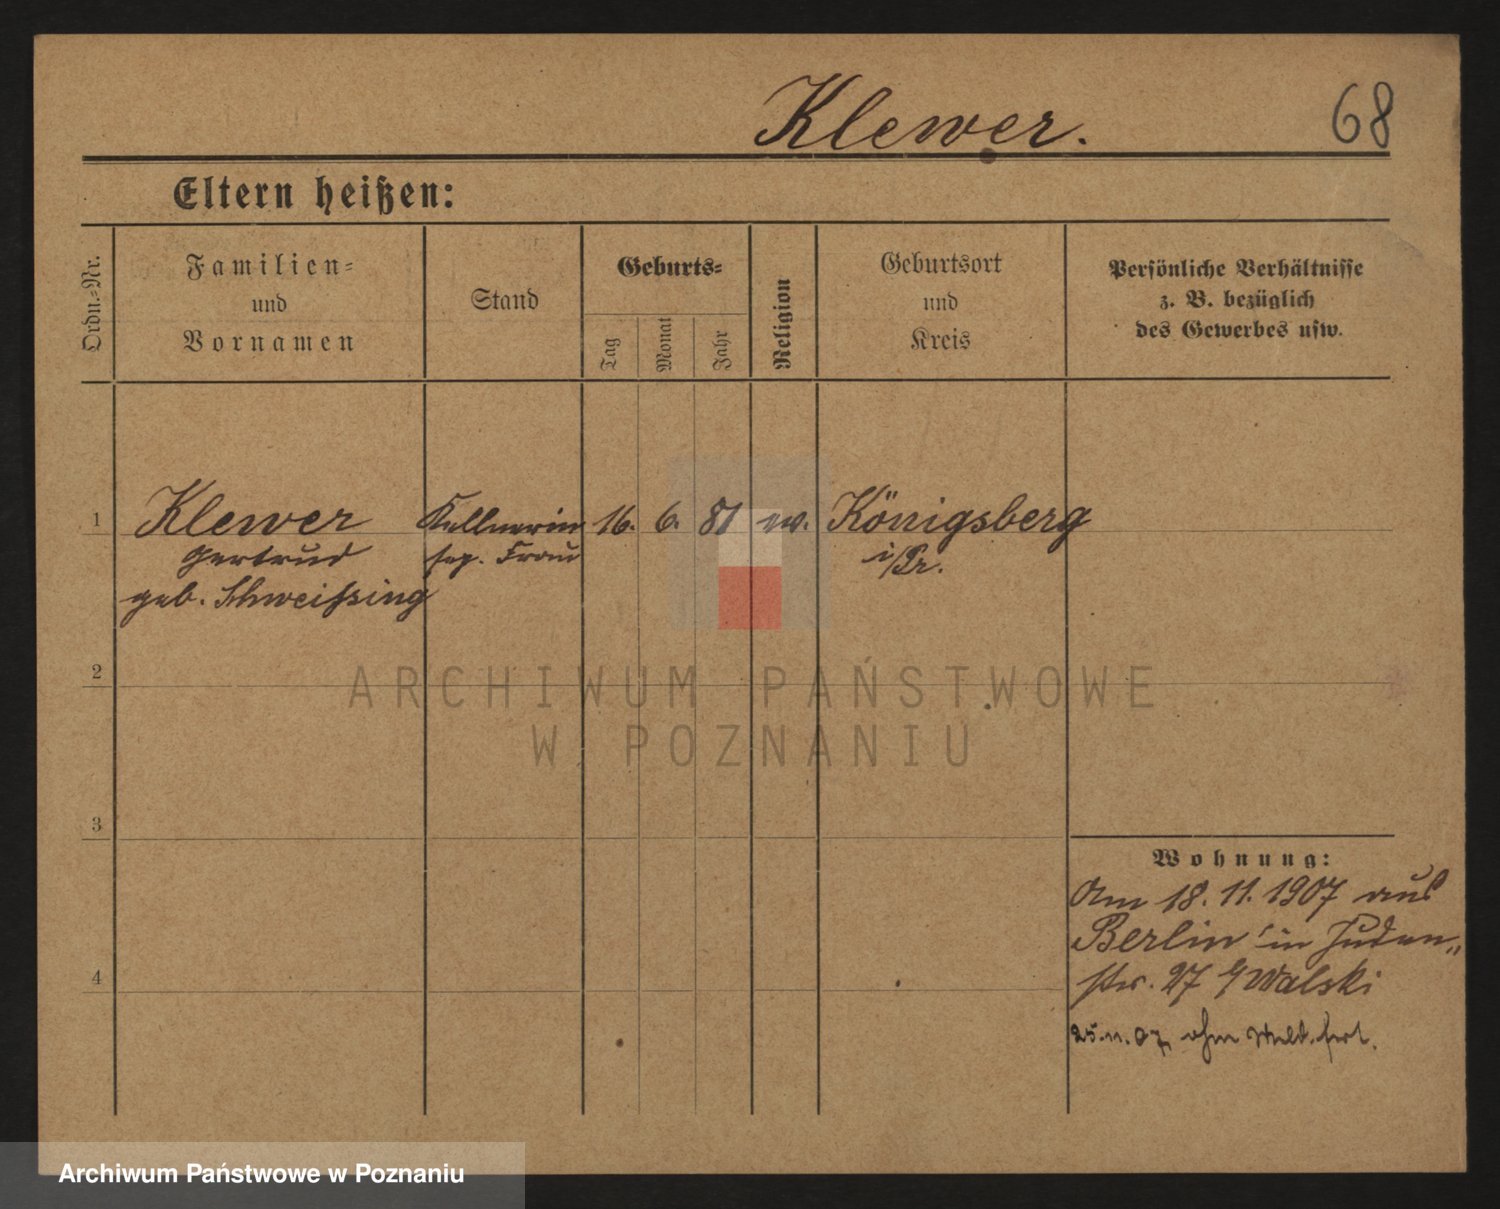 Klewer.
68
Eltern heißen:
Ordn.-Nr.
Familien-
und
Vornamen
Stand
Geburts-
Tag
Monat
Jahr
Religion
Geburtsort
und
Kreis
Persönliche Verhältnisse
z. B. bezüglich
des Gewerbes usw.
1
Klewer
Gertrud
geb. Schweißing
Kellnerin
sep. Frau
16.
6.
81
ev.
Königsberg
i/Pr.
2
3
4
Wohnung:
Am 18. 11. 1907 aus
Berlin in Juden-
str. 27 Walski
25.11.07 ohne Meld. fort.
ARCHIWUM PAŃSTWOWE
W POZNANIU
Archiwum Państwowe w Poznaniu